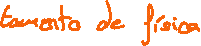 tamento de física